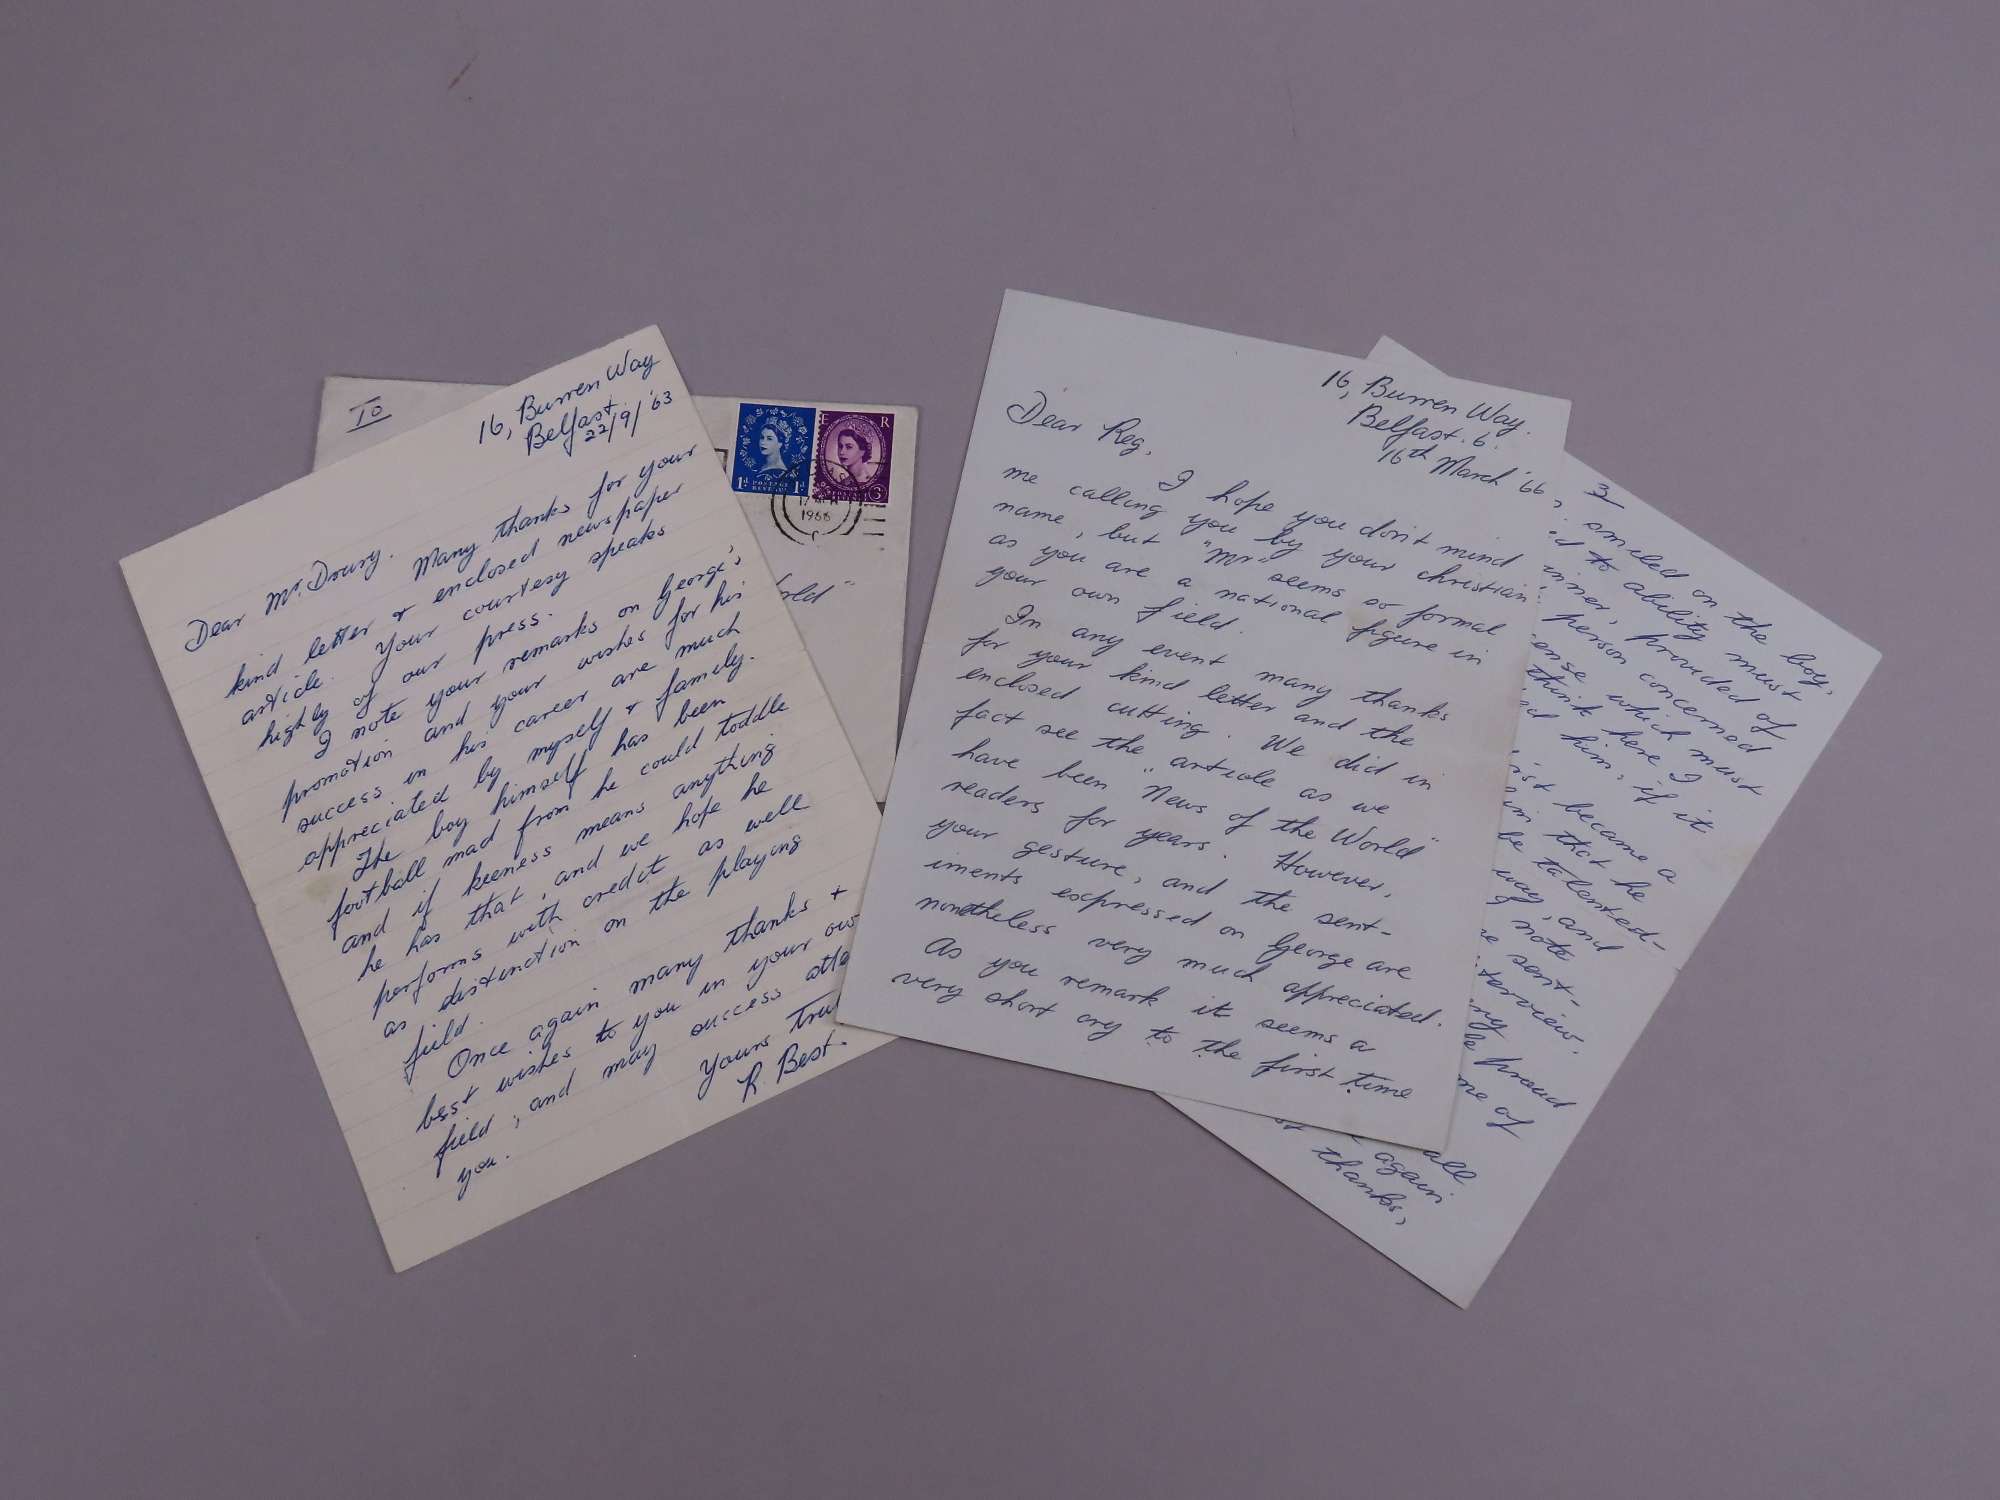 16, Burren Way
Belfast.
22/9/'63
Dear Mr. Drury.
Many thanks for your
kind letter & enclosed newspaper
article. Your courtesy speaks
highly of our press.
I note your remarks on George's
promotion and your wishes for his
success in his career are much
appreciated by myself & family.
The boy himself has been
football mad from he could toddle
and if keeness means anything
he has that, and we hope he
performs with credit as well
as distinction on the playing
field.
Once again many thanks +
best wishes to you in your
field, and may success
you.
Yours
R. Best.
TO
E R
1d POSTAGE REVENUE 1d
3
1966
16, Burren Way.
Belfast. 6.
16th March '66
Dear Reg,
I hope you don't mind
me calling you by your christian
name, but "Mr" seems so formal
as you are a national figure in
your own field.
In any event many thanks
for your kind letter and the
enclosed cutting. We did in
fact see the article as we
have been "News of the World"
readers for years. However,
your gesture, and the sent-
iments expressed on George are
nonetheless very much appreciated.
As you remark it seems a
very short cry to the first time
3
smiled on the boy,
to ability must
provided of
person concerned
which must
think here I
him, if it
became a
that he
be talented-
way, and
note
sent-
proud
of
all
again
thanks,